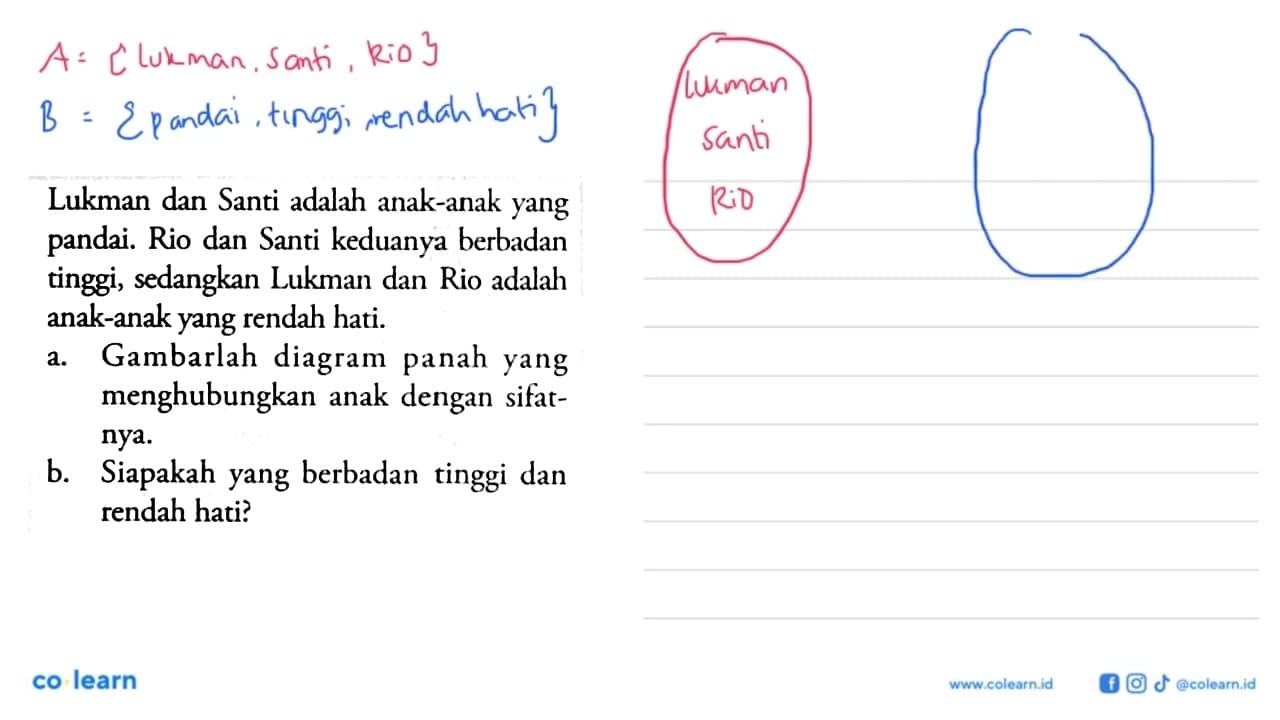 A = { Lukman, Santi, Rio }
B = { pandai, tinggi, rendah hati }
Lukman dan Santi adalah anak-anak yang
pandai. Rio dan Santi keduanya berbadan
tinggi, sedangkan Lukman dan Rio adalah
anak-anak yang rendah hati.
a. Gambarlah diagram panah yang
menghubungkan anak dengan sifat-
nya.
b. Siapakah yang berbadan tinggi dan
rendah hati?
Lukman
Santi
Rio
co learn
www.colearn.id
@colearn.id